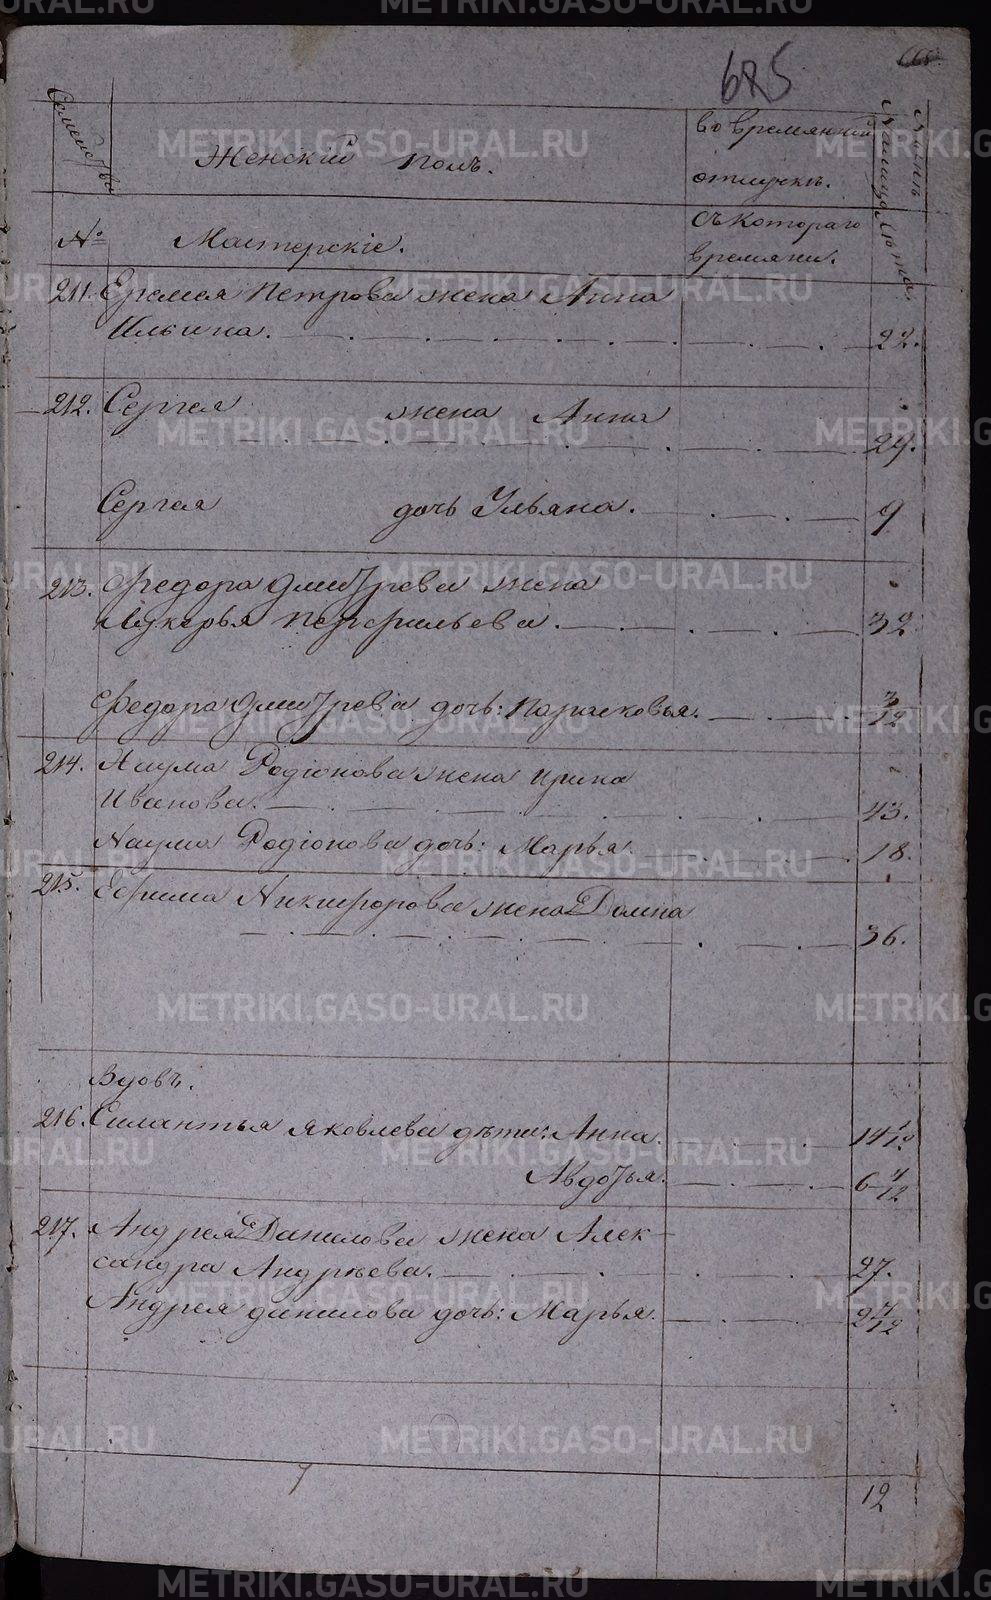 685
Семейства
Женскій полъ.
во времянной
отлучкѣ.
Нынѣ
на лицо лѣта.
№
Мастерскіе.
съ котораго
времяни.
211. Еремея Петрова жена Анна
Ильина. 22.
212. Сергея жена Анна
29.
Сергея дочь Ульяна. 9
213. Федора Дмитрева жена
Лукерья Перфильева. 32
Федора Дмитрева дочь: Парасковья. 3/12
214. Наума Родіонова жена Ирина
Иванова. 43.
Наума Родіонова дочь: Марья. 18.
215. Ефима Никифорова жена Домна
36.
Вдовъ.
216. Силантья Яковлева дѣти: Анна. 14 1/12
Авдотья. 6 4/12
217. Андрея Данилова жена Алек-
сандра Андрѣева. 27.
Андрея Данилова дочь: Марья. 2 4/12
12
METRIKI.GASO-URAL.RU